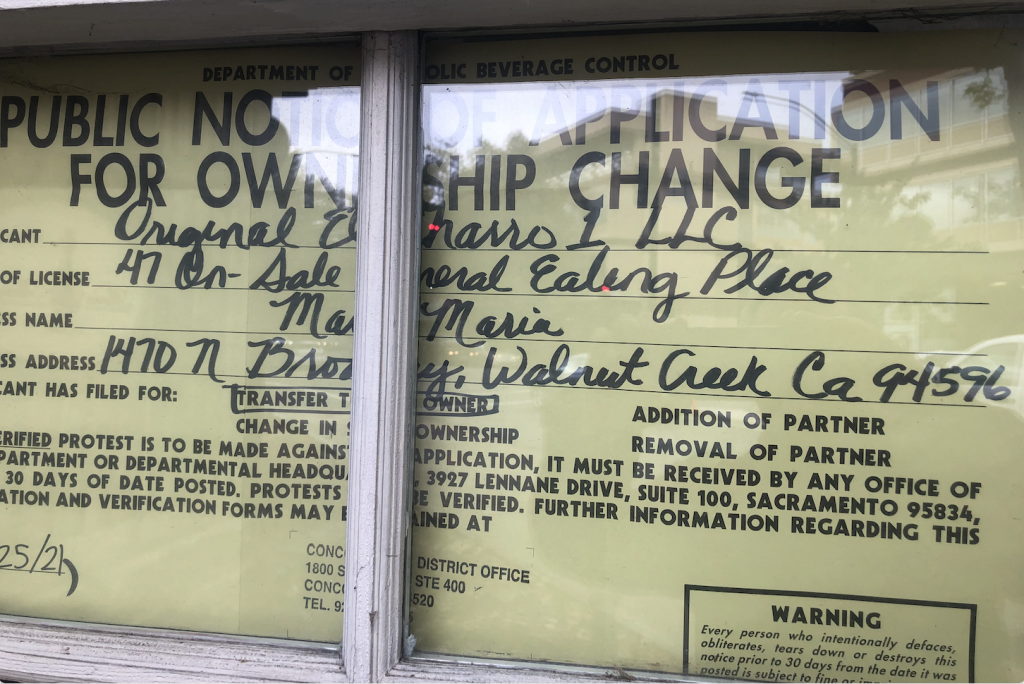 DEPARTMENT OF OLIC BEVERAGE CONTROL
PUBLIC NOTICE OF APPLICATION
FOR OWN SHIP CHANGE
CANT Original E harro 1 LLC
OF LICENSE 47 On-Sale neral Eating Place
SS NAME Ma Maria
SS ADDRESS 1470 N Broa y, Walnut Creek Ca 94596
CANT HAS FILED FOR: TRANSFER T OWNER ADDITION OF PARTNER
CHANGE IN S OWNERSHIP REMOVAL OF PARTNER
ERIFIED PROTEST IS TO BE MADE AGAINS APPLICATION, IT MUST BE RECEIVED BY ANY OFFICE OF
PARTMENT OR DEPARTMENTAL HEADQUA , 3927 LENNANE DRIVE, SUITE 100, SACRAMENTO 95834,
30 DAYS OF DATE POSTED. PROTESTS BE VERIFIED. FURTHER INFORMATION REGARDING THIS
ATION AND VERIFICATION FORMS MAY B AINED AT
25/21
CONC DISTRICT OFFICE
1800 S STE 400
CONCO 520
TEL. 92
WARNING
Every person who intentionally defaces,
obliterates, tears down or destroys this
notice prior to 30 days from the date it was
posted is subject to fine or